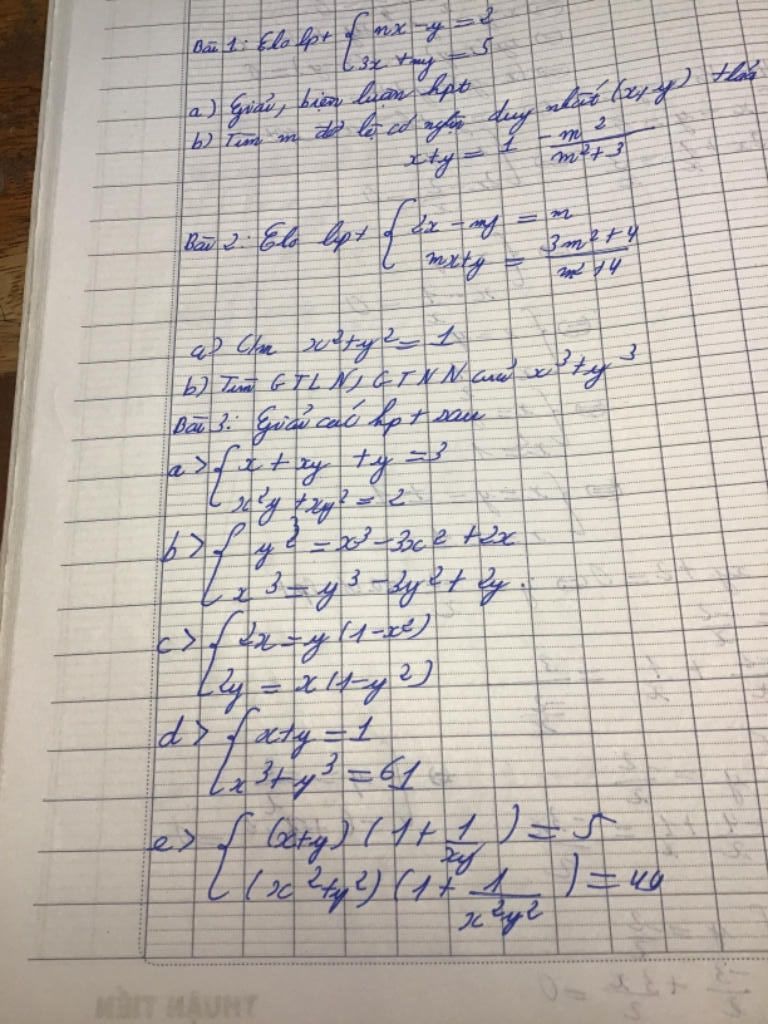 Bài 1: Cho hpt { mx - y = 2
3x + my = 5
a) Giải, biện luận hpt
b) Tìm m để hệ có nghiệm duy nhất (x, y) thỏa
x+y = 1 - m²/(m²+3)
Bài 2: Cho hpt { 2x - my = m
mx+y = (3m²+4)/(m²+4)
a> C/m x²+y² = 1
b) Tìm GTLN, GTNN của x³+y³
Bài 3: Giải các hpt sau
a> { x + xy + y = 3
x²y + xy² = 2
b> { y³ = x³ - 3x² + 2x
x³ = y³ - 3y² + 2y.
c> { 2x = y(1-x²)
2y = x(1-y²)
d> { x+y = 1
x³+y³ = 61
e> { (x+y)(1 + 1/xy) = 5
(x²+y²)(1 + 1/x²y²) = 49
THUẬN TIẾN